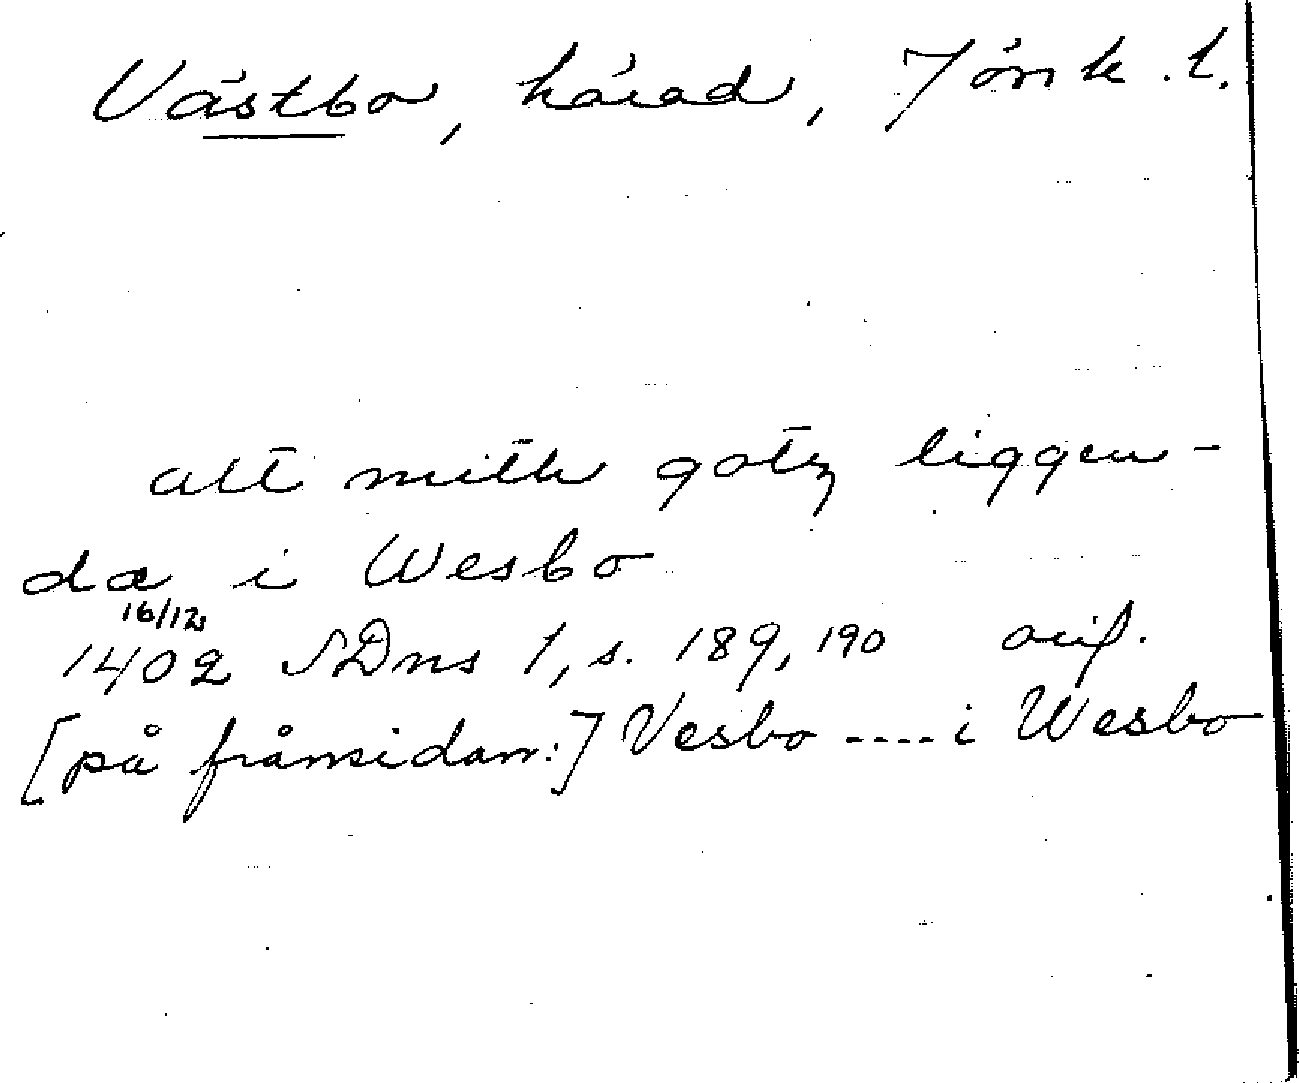 Västbo, härad, Jönk. l.
alt mith gotz liggen-
dæ i Wesbo
16/12
1402 SDns 1, s. 189, 190 orig.
[på framsidan:] Vesbo ---- i Wesbo